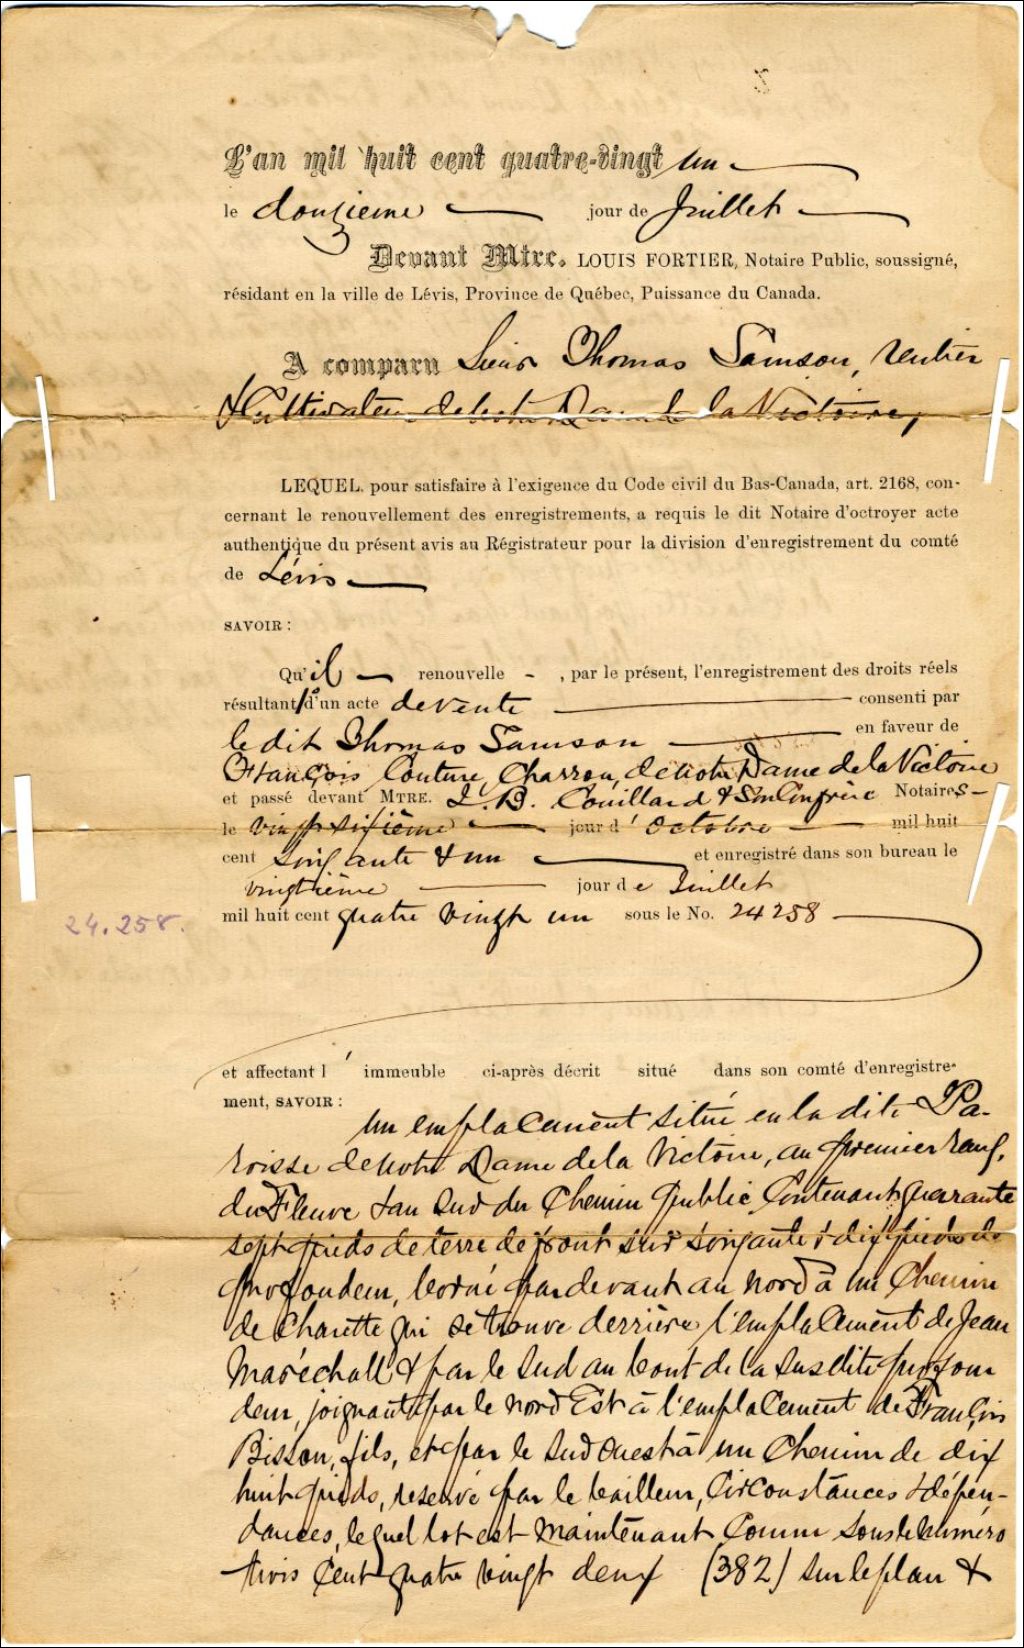 L'an mil huit cent quatre-vingt un
le douzième jour de Juillet
Devant Mtre. LOUIS FORTIER, Notaire Public, soussigné,
résidant en la ville de Lévis, Province de Québec, Puissance du Canada.
A comparu Sieur Thomas Samson, rentier
& Cultivateur de Notre Dame de la Victoire,
LEQUEL, pour satisfaire à l'exigence du Code civil du Bas-Canada, art. 2168, con-
cernant le renouvellement des enregistrements, a requis le dit Notaire d'octroyer acte
authentique du présent avis au Régistrateur pour la division d'enregistrement du comté
de Lévis
SAVOIR :
Qu'il renouvelle - , par le présent, l'enregistrement des droits réels
résultant d'un acte de vente consenti par
le dit Thomas Samson en faveur de
François Couture, Charron, de Notre Dame de la Victoire
et passé devant MTRE. L. B. Couillard & Son Confrère Notaires -
le vingt sixième jour d' Octobre mil huit
cent soixante & un et enregistré dans son bureau le
vingtième jour de Juillet
mil huit cent quatre vingt un sous le No. 24258
24.258.
et affectant l' immeuble ci-après décrit situé dans son comté d'enregistre-
ment, SAVOIR :
Un emplacement situé en la dite Pa-
roisse de Notre Dame de la Victoire, au premier rang,
du Fleuve & au Sud du Chemin public, Contenant quarante
sept pieds de terre de front sur soixante & dix pieds de
profondeur, borné par devant au nord à un Chemin
de Charette qui se trouve derrière l'emplacement de Jean
Maréchall & par le Sud au bout de la susdite profon
deur, joignant par le nord Est à l'emplacement de François
Bisson, fils, et par le Sud Ouest à un Chemin de dix
huit pieds, reservé par le bailleur, Circonstances & dépen-
dances, lequel lot est maintenant Connu sous le numéro
trois Cent quatre vingt deux (382) sur le plan &